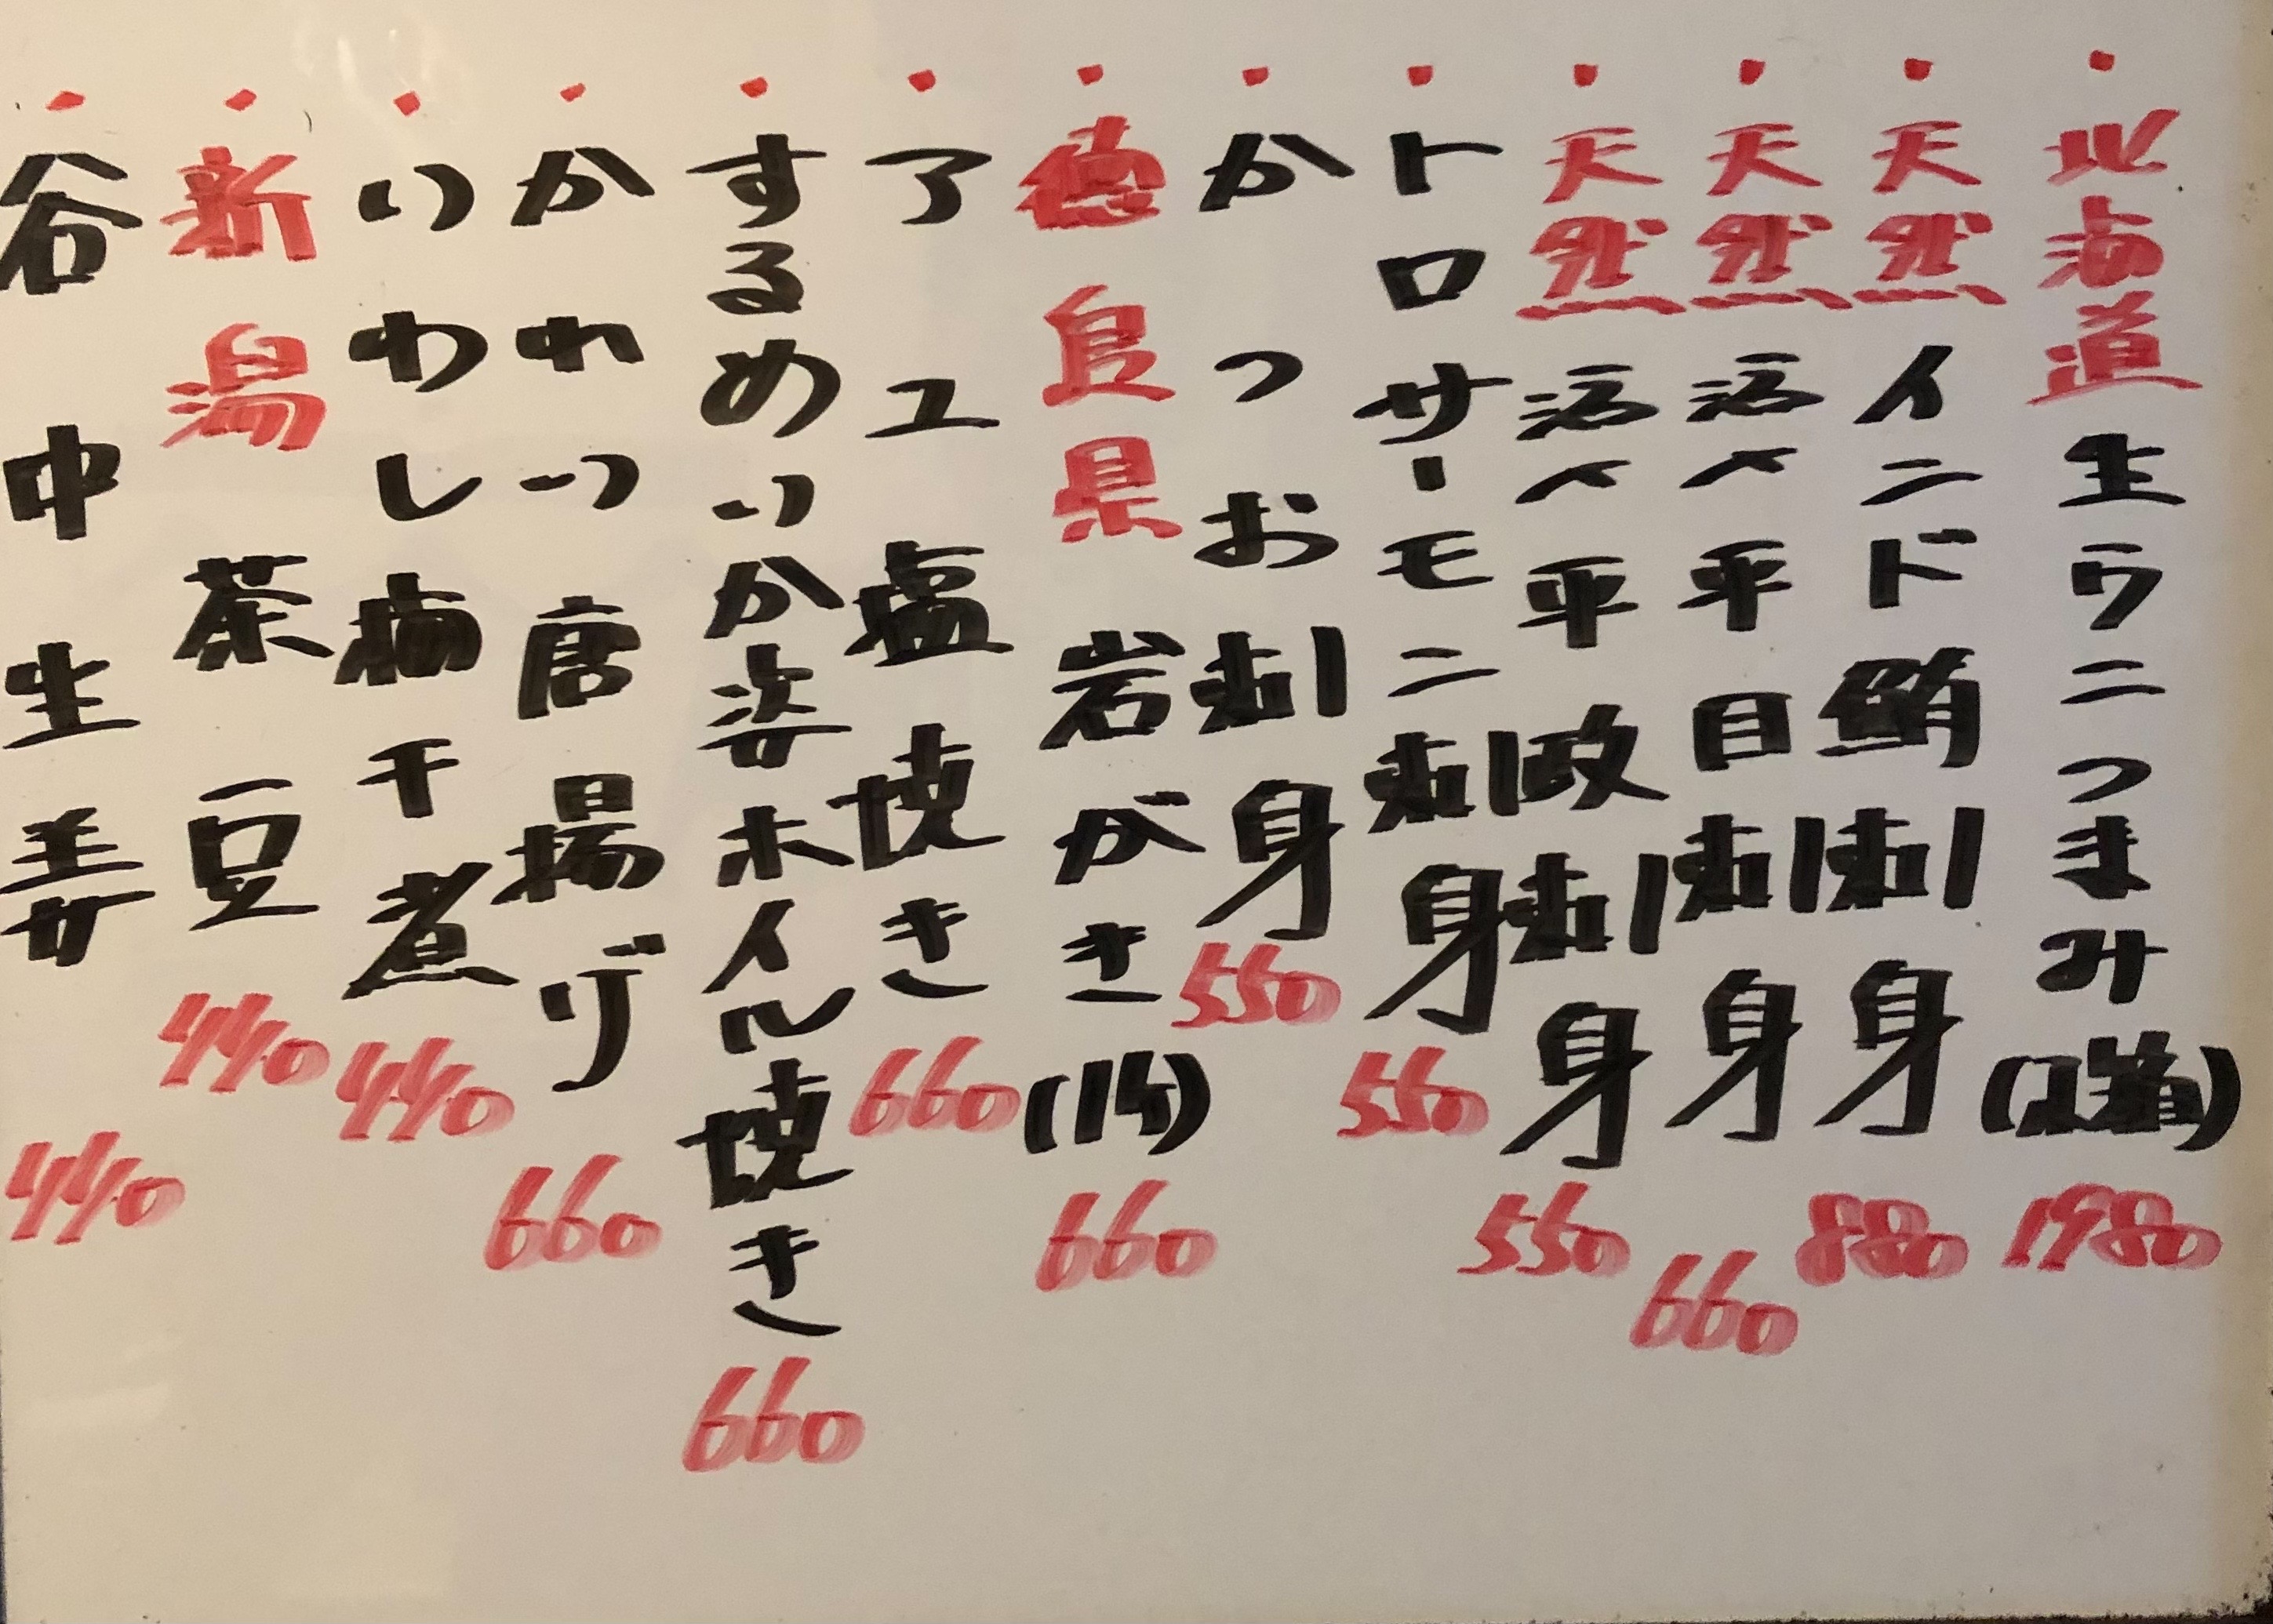 ・北海道生ウニつまみ(1箱) 1980
・天然インド鮪刺身 880
・天然活〆平目刺身 660
・天然活〆平政刺身 550
・トロサーモン刺身 550
・かつお刺身 550
・徳島県岩がき(1ケ) 660
・アユ塩焼き 660
・するめいか姿ホイル焼き 660
・かれい唐揚げ 660
・いわし梅干煮 440
・新潟茶豆 440
・谷中生姜 440